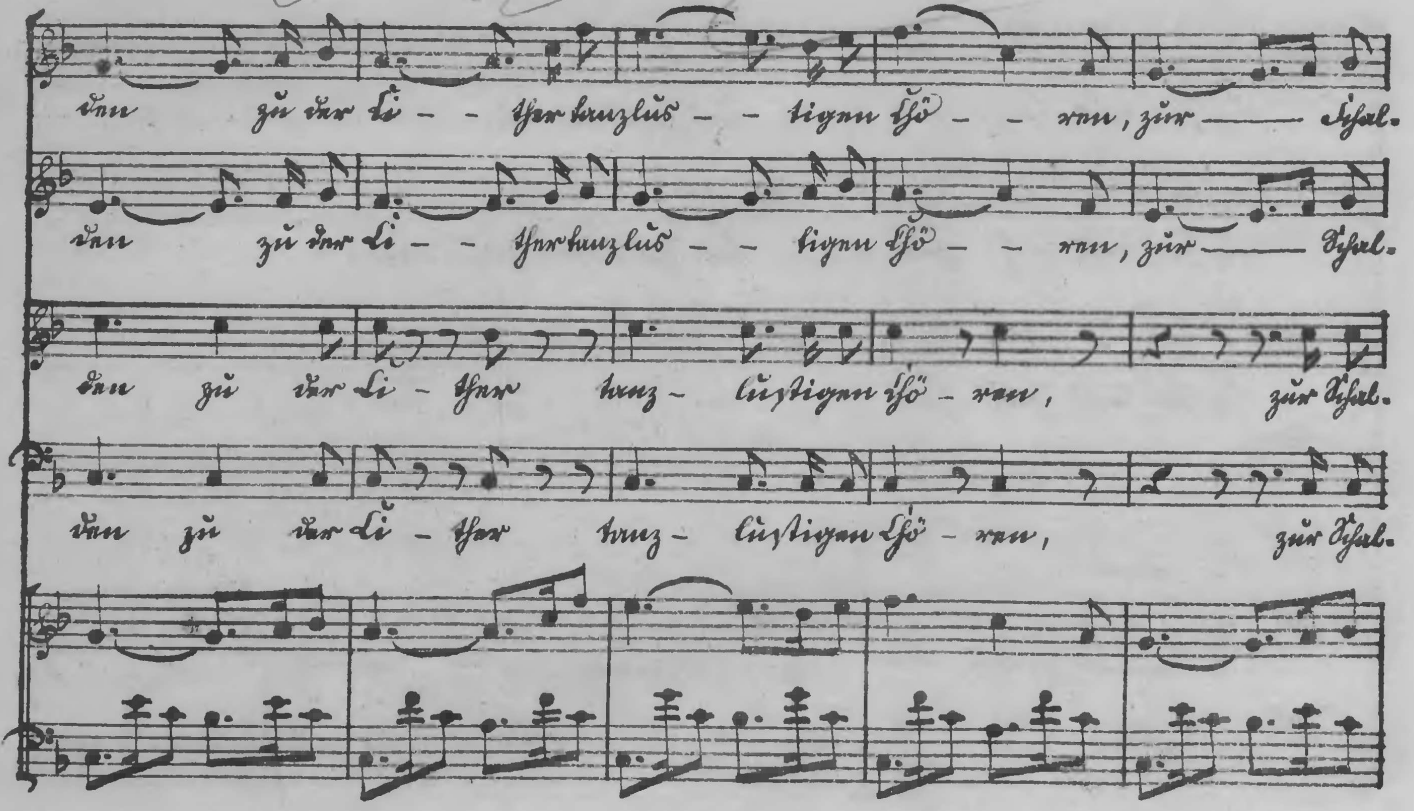 den zu der Ci - - ther tanzlus - - tigen Chö - - ren, zur —— Schal-
den zu der Ci - - ther tanzlus - - tigen Chö - - ren, zur —— Schal-
den zu der Ci - ther tanz - lustigen Chö - ren, zur Schal-
den zu der Ci - ther tanz - lustigen Chö - ren, zur Schal-